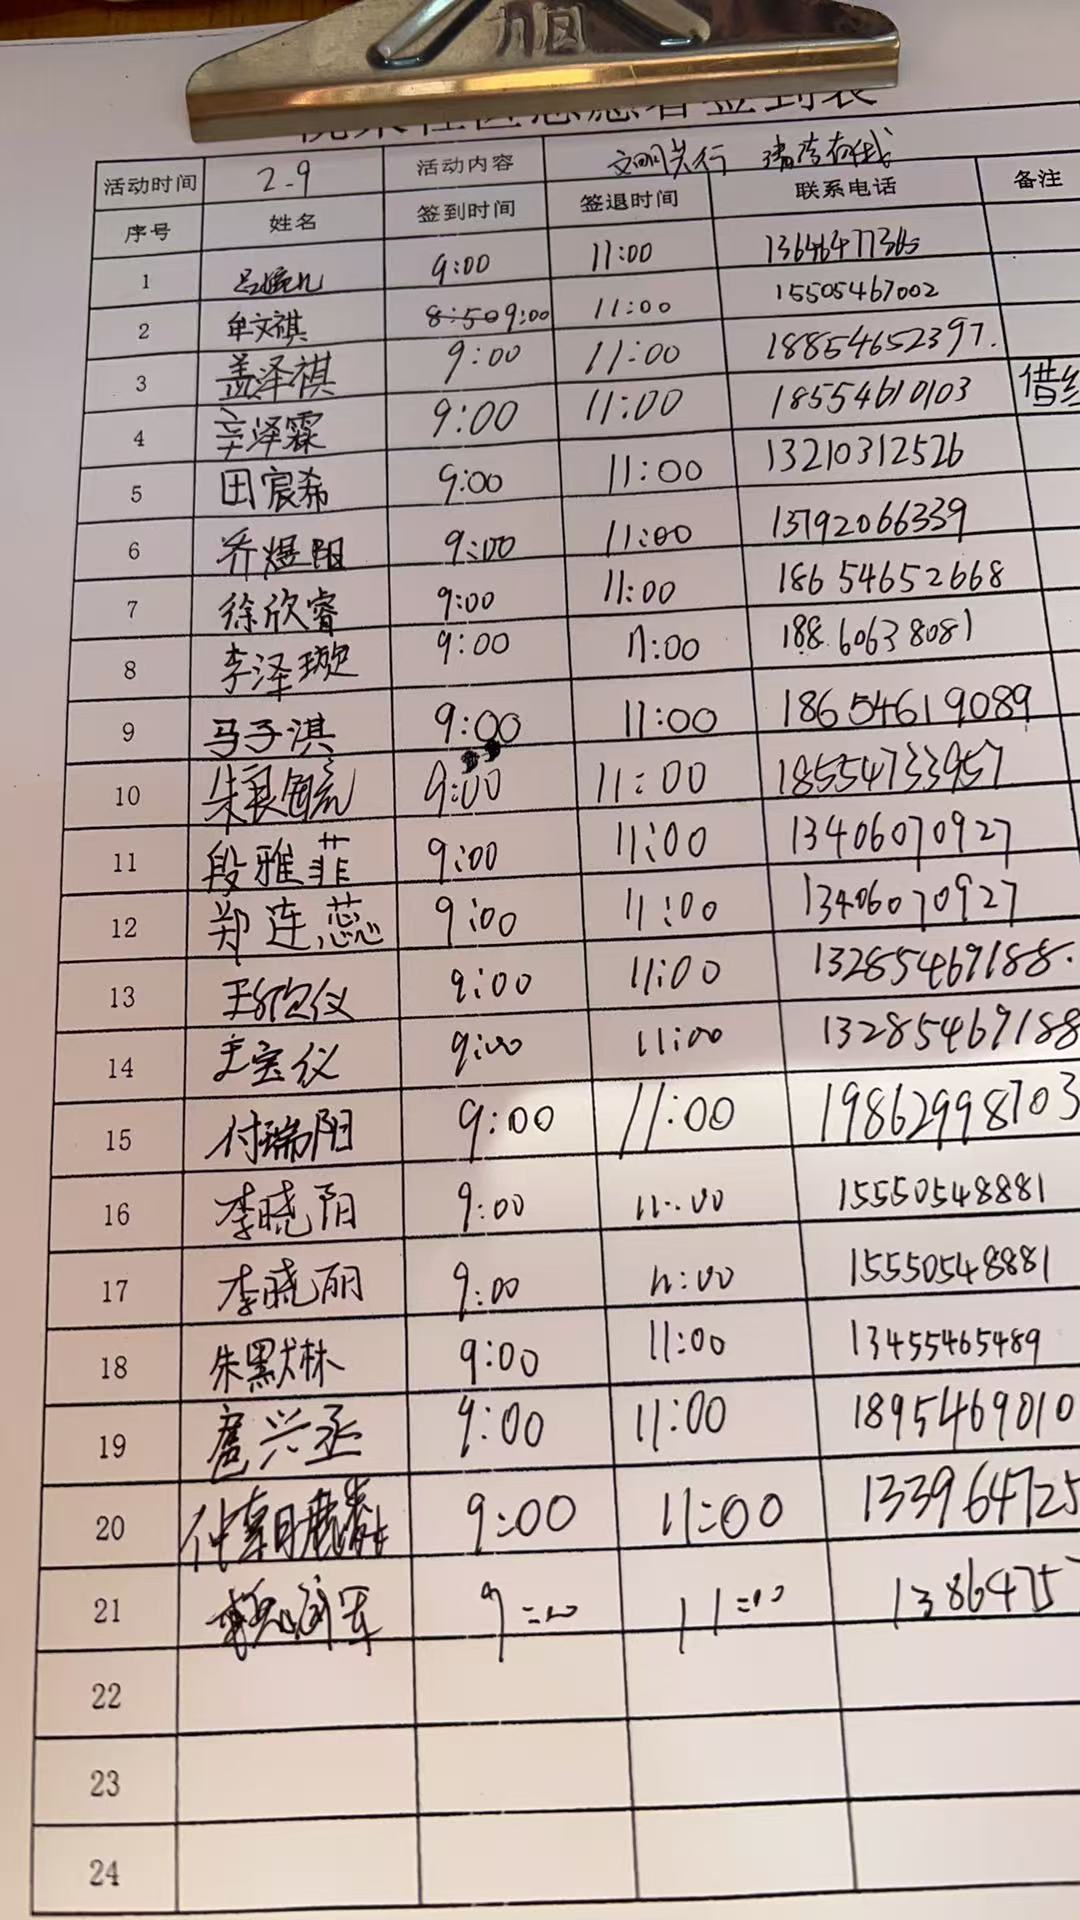 力因
社区志愿者签到表
活动时间 2.9 活动内容 文明关行 清洁在线
序号 姓名 签到时间 签退时间 联系电话 备注
1 9:00 11:00 13646477365
2 单文祺 8:50 9:00 11:00 15505467002
3 盖泽祺 9:00 11:00 18854652397.
4 辛泽霖 9:00 11:00 18554610103 借
5 田宸希 9:00 11:00 13210312526
6 乔煜阳 9:00 11:00 13792066339
7 徐欣睿 9:00 11:00 18654652668
8 李泽璇 9:00 11:00 188.60638081
9 马子淇 9:00 11:00 18654619089
10 朱良毓 9:00 11:00 18554733957
11 段雅菲 9:00 11:00 13406070927
12 郑连蕊 9:00 11:00 13406070927
13 王欣仪 9:00 11:00 13285469188.
14 王宝仪 9:00 11:00 13285469188
15 付瑞阳 9:00 11:00 19862998703
16 李晓阳 9:00 11:00 15550548881
17 李晓丽 9:00 11:00 15550548881
18 朱默林 9:00 11:00 13455465489
19 扈兴丞 9:00 11:00 1895469010
20 9:00 11:00 133964725
21 9:00 11:00 1386475
22
23
24